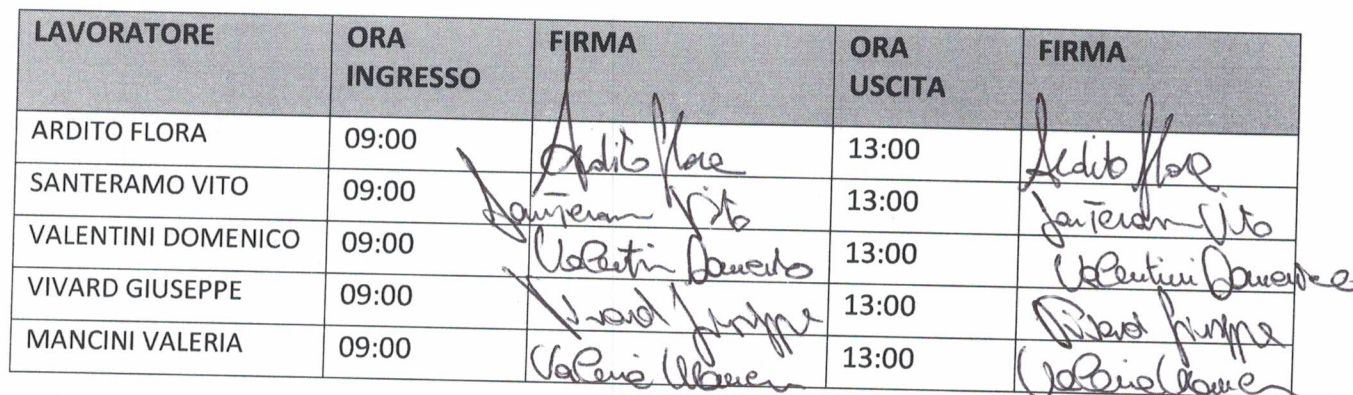 LAVORATORE ORA INGRESSO FIRMA ORA USCITA FIRMA
ARDITO FLORA 09:00 Ardito Flora 13:00 Ardito Flora
SANTERAMO VITO 09:00 Santeram Vito 13:00 Santeram Vito
VALENTINI DOMENICO 09:00 Valentin Domenico 13:00 Valentini Domenico
VIVARD GIUSEPPE 09:00 Vivard Giuseppe 13:00 Vivard Giuseppe
MANCINI VALERIA 09:00 Valeria Mancini 13:00 Valeria Mancini